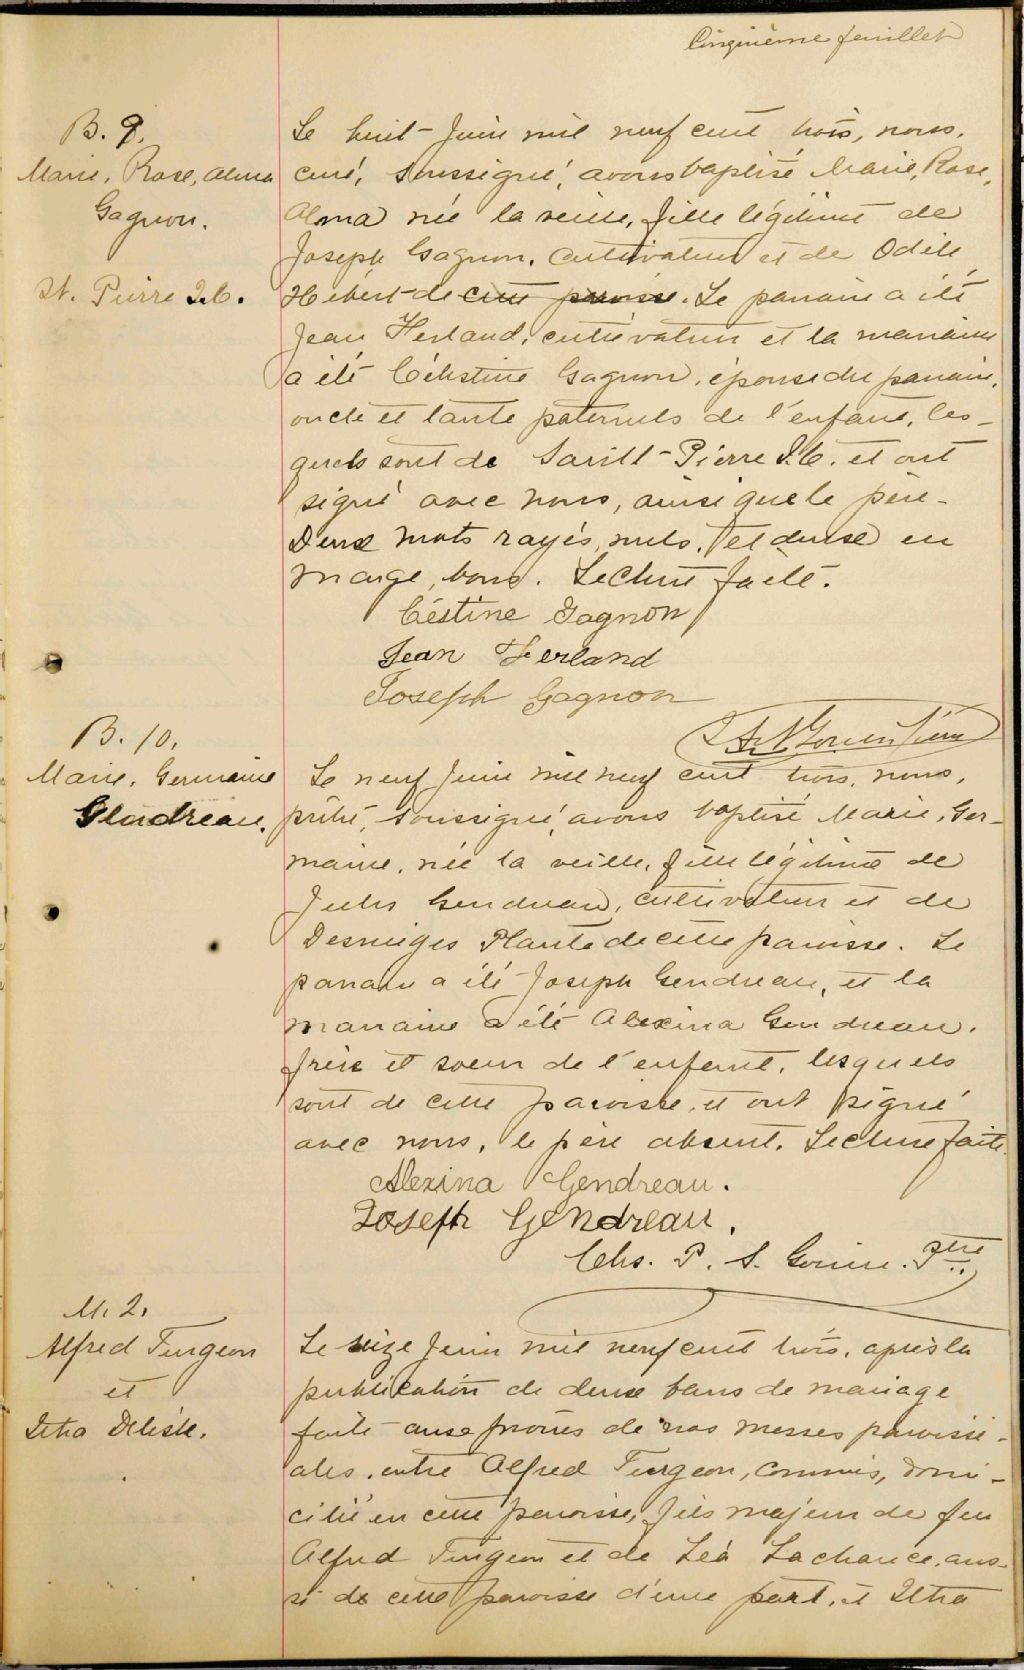 Cinquième feuillet
B. 9.
Marie, Rose, Alma
Gagnon.
St. Pierre I.O.
Le huit Juin mil neuf cent trois, nous,
curé, soussigné, avons baptisé Marie, Rose,
Alma née la veille, fille légitime de
Joseph Gagnon, cultivateur et de Odile
Hébert de cette paroisse. Le parrain a été
Jean Ferland, cultivateur et la marraine
a été Célestine Gagnon, épouse du parrain,
oncle et tante paternels de l'enfant, les-
quels sont de Saint-Pierre I.O. et ont
signé avec nous, ainsi que le père.
Deux mots rayés, nuls, et deux en
marge, bons. Lecture faite.
Céstine Gagnon
Jean Ferland
Joseph Gagnon
B. 10.
Marie, Germaine
Gendreau.
Le neuf Juin mil neuf cent trois, nous,
prêtre, soussigné, avons baptisé Marie, Ger-
maine, née la veille, fille légitime de
Jules Gendreau, cultivateur et de
Desneiges Plante de cette paroisse. Le
parrain a été Joseph Gendreau, et la
marraine a été Alexina Gendreau,
frère et soeur de l'enfant, lesquels
sont de cette paroisse, et ont signé
avec nous, le père absent. Lecture faite.
Alexina Gendreau.
Joseph Gendreau.
Chs. P. S. Gouin. Ptre
M. 2.
Alfred Turgeon
et
Délisle.
Le seize Juin mil neuf cent trois, après la
publication de deux bans de mariage
faite aux prônes de nos messes paroissi-
ales, entre Alfred Turgeon, commis, domi-
cilié en cette paroisse, fils majeur de feu
Alfred Turgeon et de Léa Lachance, aus-
si de cette paroisse d'une part, et